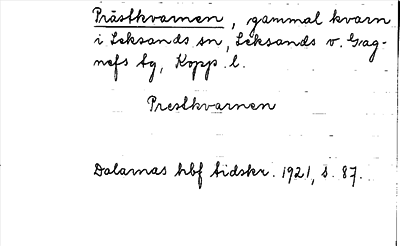 Prästkvarnen, gammal kvarn
i Leksands sn, Leksands v. Gag-
nefs tg, Kopp. l.
Prestkvarnen
Dalarnas hbf tidskr. 1921, s. 87.